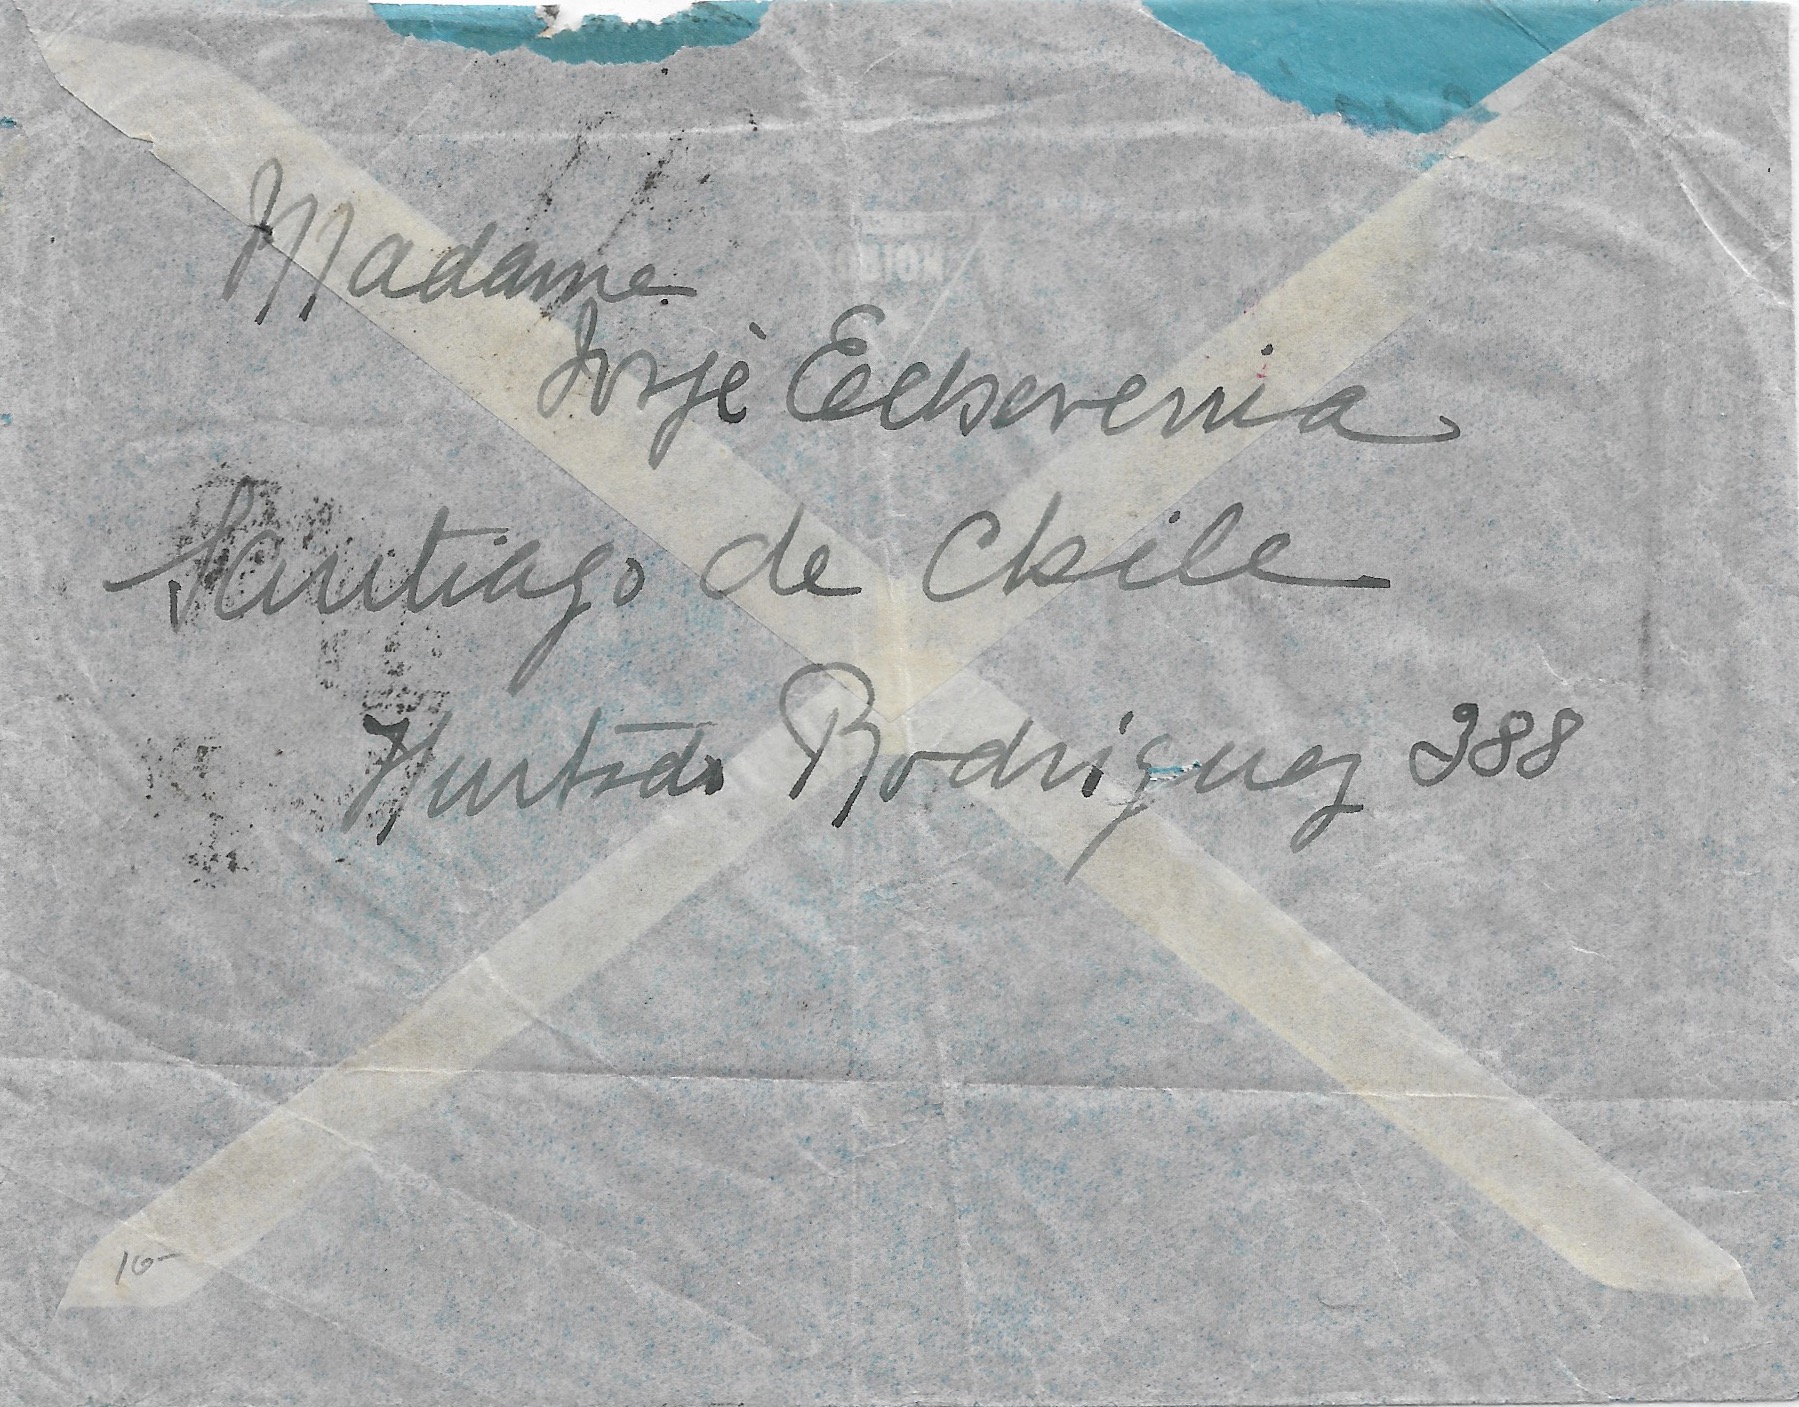 Madame
José Echeverria
Santiago de Chile
Hurtado Rodriguez 388
10-